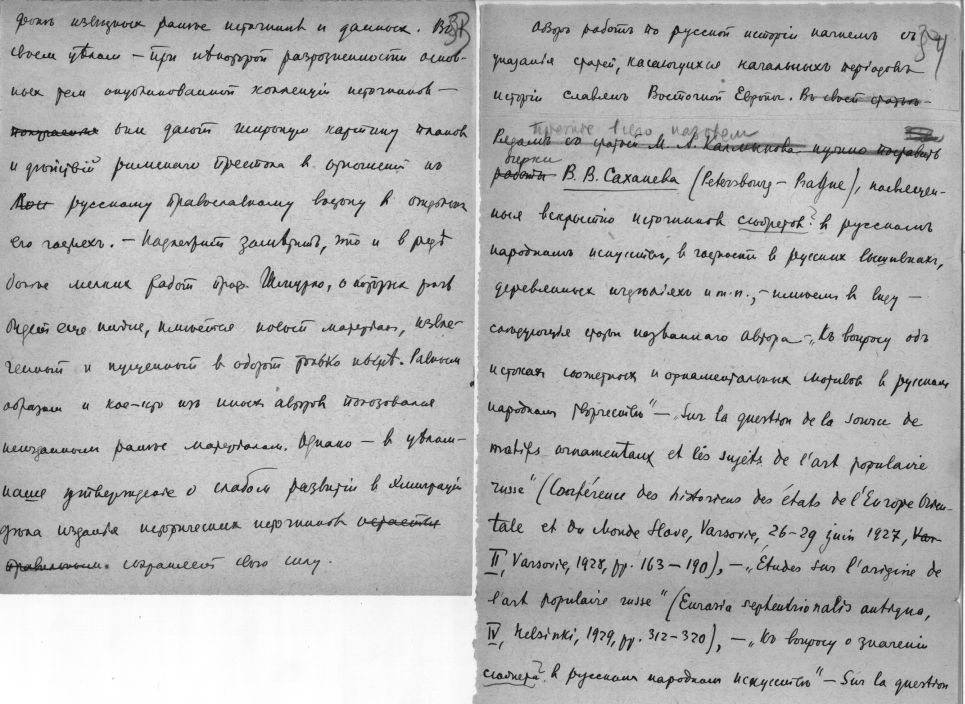 фонъ извѣстныхъ ранѣе источник и данныхъ. Въ
своем цѣлом — при нѣкоторой разрозненности основ-
ных тем опубликованной коллекціи источников —
они дают широкую картину планов
и дѣйствій римскаго престола в отношеніи къ
русскому православному востоку в
его частях. — Надлежит замѣтить, что и в рядѣ
болѣе мелких работ проф. Шмурло, о которых рѣчь
будет еще ниже, имѣется новый матеріал, извле-
ченный и пущенный в оборот только впервѣ. Равным
образом и кое-кто из иных авторов пользовался
неизданным ранѣе матеріалом. Однако — в цѣлом —
наше утвержденіе о слабом развитіи в Эмиграціи
дѣла изданія исторических источников остается
правильным. сохраняет свою силу.
39
Обзоръ работъ по русской исторіи начнемъ съ
указанія статей, касающихся начальныхъ періодовъ
исторіи славянъ Восточной Европы. Въ своей статьѣ
Прежде всего назовем
Рядомъ со статьей М. А. Калмыкова нужно поставить
очерки
работы В. В. Саханева (Petersbourg — Prague), посвящен-
ныя вскрытію источников сюжетов? в русскомъ
народномъ искусствѣ, в частности в русских вышивках,
деревянныхъ издѣліяхъ и т.п., — имѣем в виду —
слѣдующія статьи названнаго автора — „Къ вопросу объ
истоках сюжетных и орнаментальных мотивов в русском
народном творчествѣ" — „Sur la question de la source de
motifs ornamentaux et les sujets de l'art populaire
russe" (Conférence des historiens des états de l'Europe Orien-
tale et du Monde Slave, Varsovie, 26-29 juin 1927, Var
II, Varsovie, 1928, pp. 163 — 190), — „Études sur l'origine de
l'art populaire russe" (Eurasia septentrionalis antiqua,
IV, Helsinki, 1929, pp. 312-320), — „Къ вопросу о значеніи
сюжета? в русском народном искусствѣ" — Sur la question